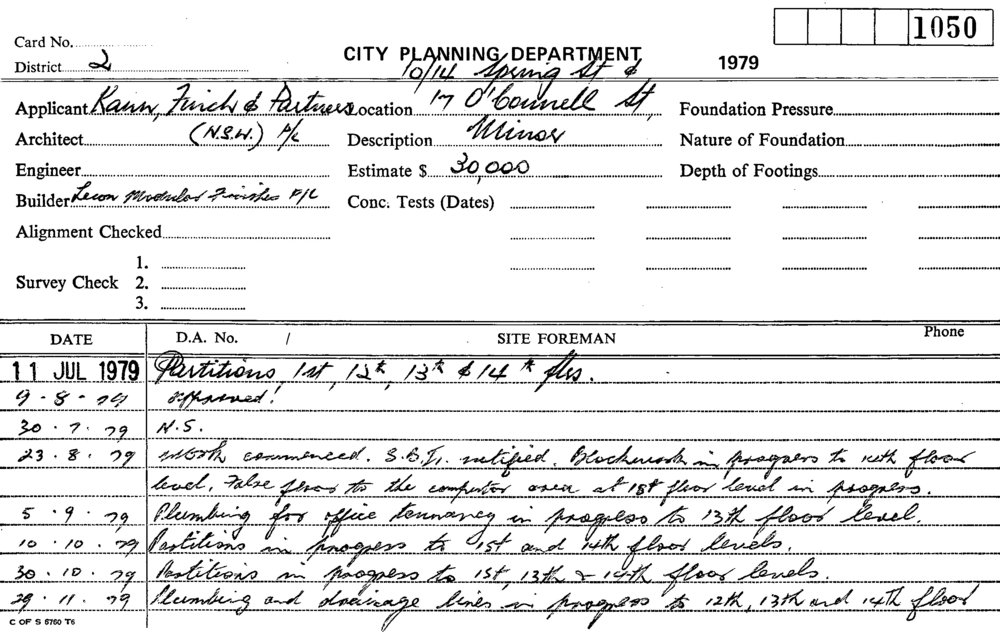 1050
Card No.
CITY PLANNING DEPARTMENT 1979
District 2
10/14 Spring St &
Applicant Kann, Finch & Partners Location 17 O'Connell St, Foundation Pressure
Architect (N.S.W.) P/L Description Minor Nature of Foundation
Engineer Estimate $ 30,000 Depth of Footings
Builder Modular Finishes P/L Conc. Tests (Dates)
Alignment Checked
1.
Survey Check 2.
3.
DATE D.A. No. / SITE FOREMAN Phone
11 JUL 1979 Partitions, 1st, 12th, 13th & 14th flrs.
9.8.79 approved!
30.7.79 N.S.
23.8.79 Work commenced. S.B.I. notified. Blockwork in progress to 14th floor
level. False floor to the computor area at 1st floor level in progress.
5.9.79 Plumbing for office tennancy in progress to 13th floor level.
10.10.79 Partitions in progress to 1st and 14th floor levels.
30.10.79 Partitions in progress to 1st, 13th & 14th floor levels.
29.11.79 Plumbing and drainage lines in progress to 12th, 13th and 14th floor
C OF S 6760 T6